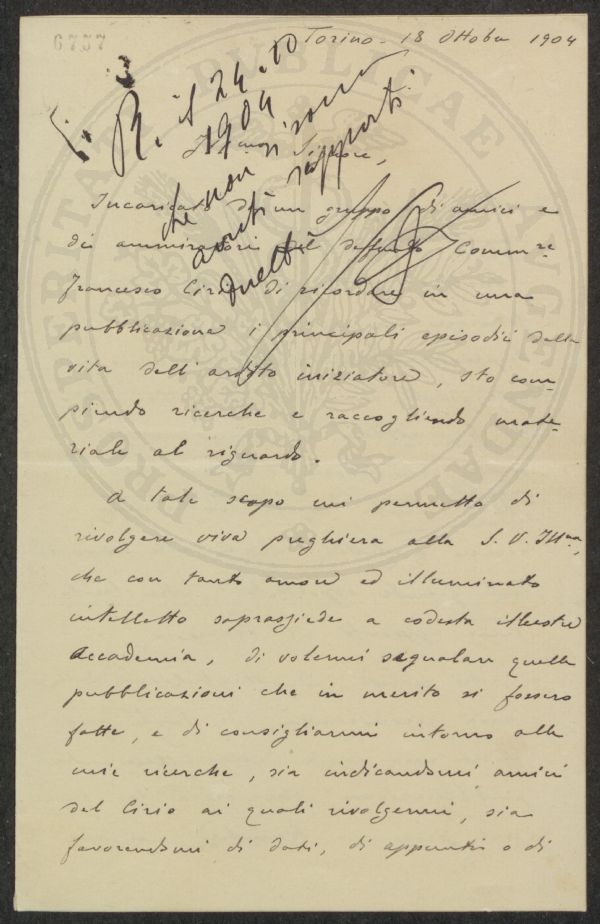 6737
Torino - 18 Ottobre 1904
R. il 24-10
1904
che non si sono
avuti rapporti
Ill.mo Signore,
Incaricato da un gruppo di amici e
di ammiratori del defunto Comm.re
Francesco Cirio di ricordare in una
pubblicazione i principali episodii della
vita dell'ardito iniziatore, sto com-
piendo ricerche e raccogliendo mate-
riale al riguardo.
A tale scopo mi permetto di
rivolgere viva preghiera alla S. V. Ill.ma,
che con tanto amore ed illuminato
intelletto soprassiede a codesta illustre
Accademia, di volermi segnalare quelle
pubblicazioni che in merito si fossero
fatte, e di consigliarmi intorno alle
mie ricerche, sia indicandomi amici
del Cirio ai quali rivolgermi, sia
favorendomi di dati, di appunti o di
PROSPERITATI PUBLICAE AUGENDAE